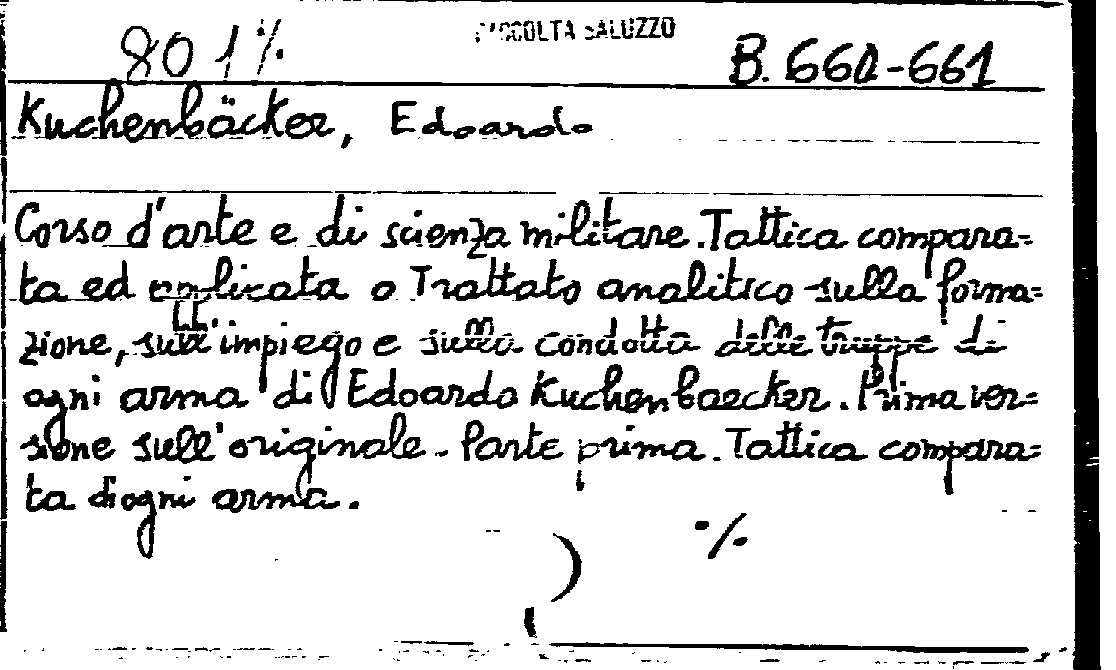 RACCOLTA SALUZZO
801 ./.
B. 660-661
Kuchenbäcker, Edoardo
Corso d'arte e di scienza militare. Tattica compara=
ta ed applicata o Trattato analitico sulla forma=
zione, sull'impiego e sulla condotta delle truppe di
ogni arma di Edoardo Kuchenbaecker. Prima ver=
sione sull'originale. Parte prima. Tattica compara=
ta di ogni arma.
./.